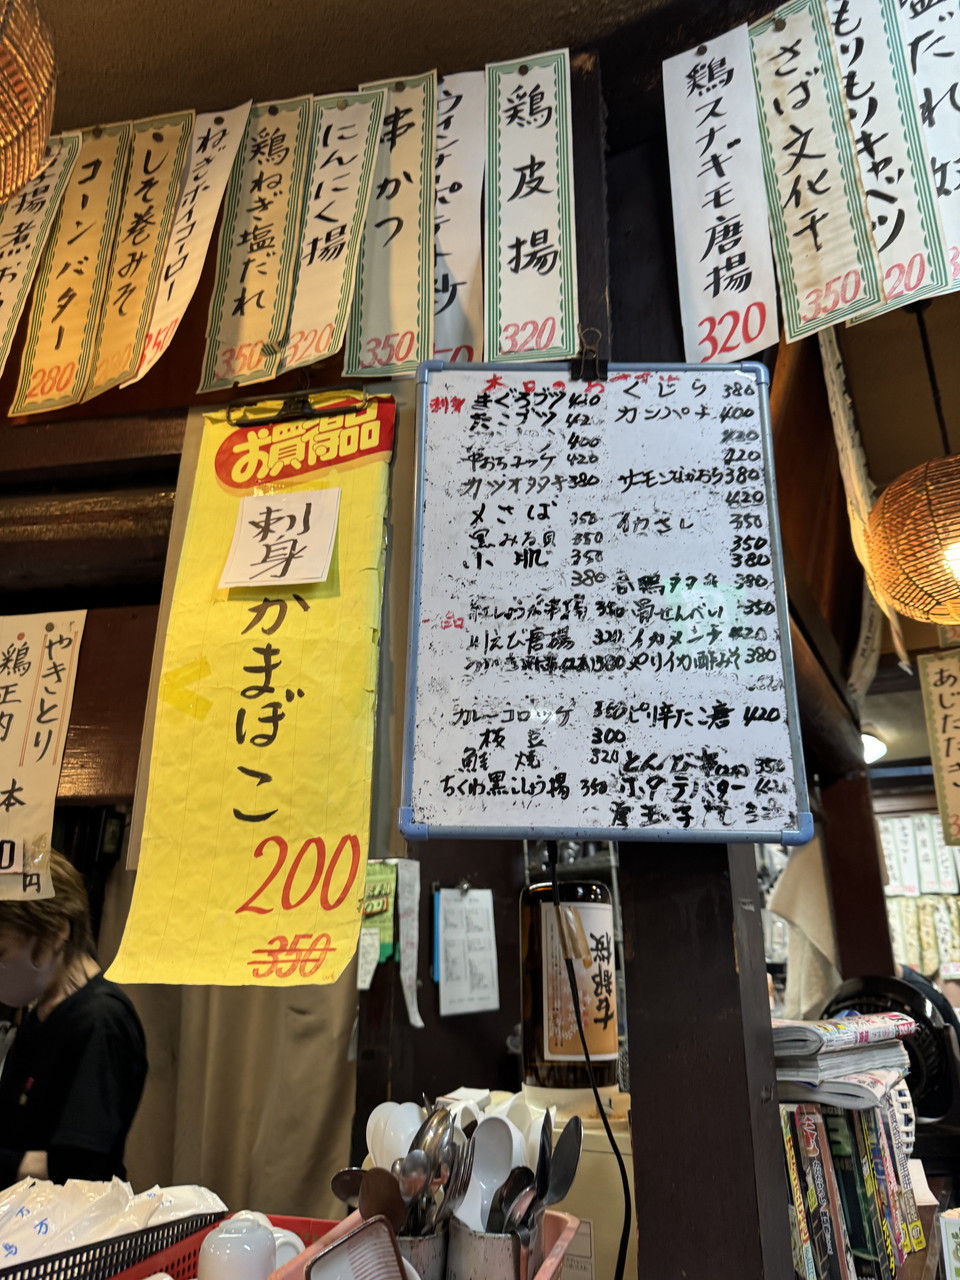 コーンバター
280
しそ巻みそ
ねぎホイコーロー
350
鶏ねぎ塩だれ
350
にんにく揚
320
串かつ
350
鶏皮揚
320
鶏スナギモ唐揚
320
さば文化干
350
もりもりキャベツ
20
塩だれ
お買得品
刺身
かまぼこ
200
350
やきとり
鶏正肉
本
円
本日のおすすめ
刺身
まぐろブツ 420
たこブツ 42
400
中おちユッケ 420
カツオタタキ 380
〆さば 350
黒みる貝 350
小肌 350
380
くじら 380
カンパチ 400
420
420
サーモンなかおち 380
420
イカさし 350
350
380
合鴨タタキ 380
一品
紅しょうが串揚 350
川えび唐揚 320
380
カレーコロッケ 350
枝豆 300
鮭焼 320
ちくわ黒こしょう揚 350
骨せんべい 350
イカメンチ 420
やりイカ酢みそ 380
ピリ辛たこ唐 420
とんび 350
ホタテバター
あじたたき